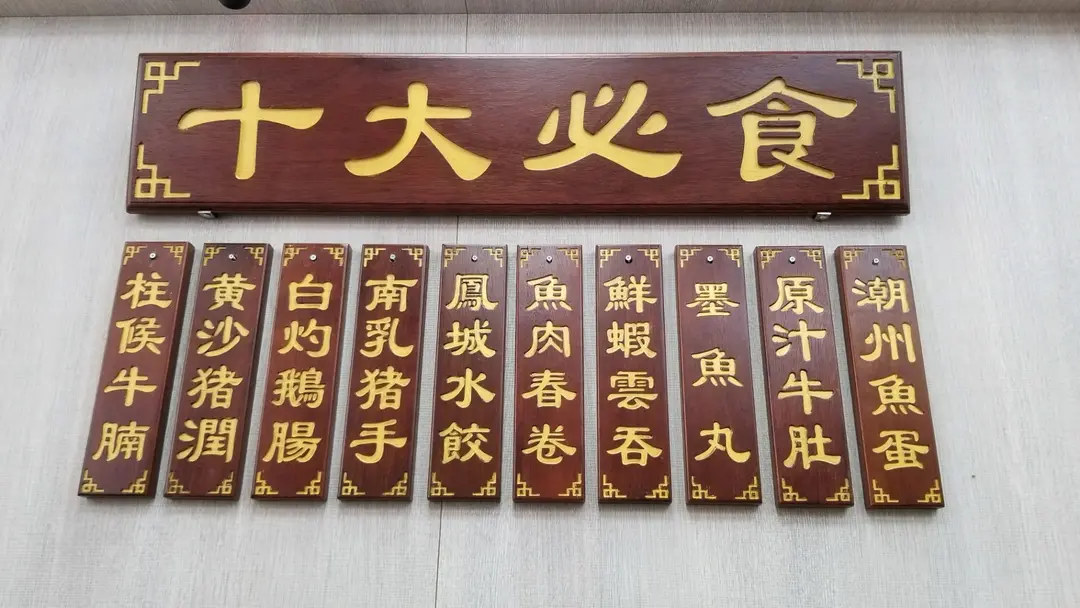 十大必食
潮州魚蛋
原汁牛肚
墨魚丸
鮮蝦雲吞
魚肉春卷
鳳城水餃
南乳猪手
白灼鵝腸
黄沙猪潤
柱候牛腩